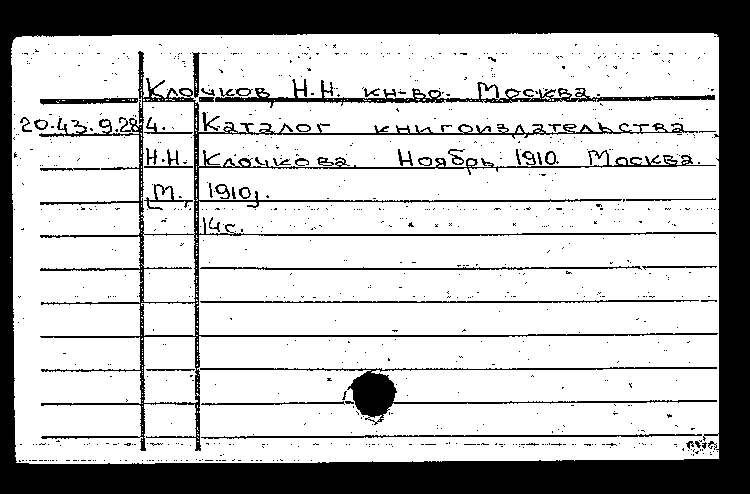 Клочков, Н.Н. кн-во. Москва.
20.43.9.284. Каталог книгоиздательства
Н.Н. Клочкова. Ноябрь, 1910. Москва.
[М., 1910].
14с.